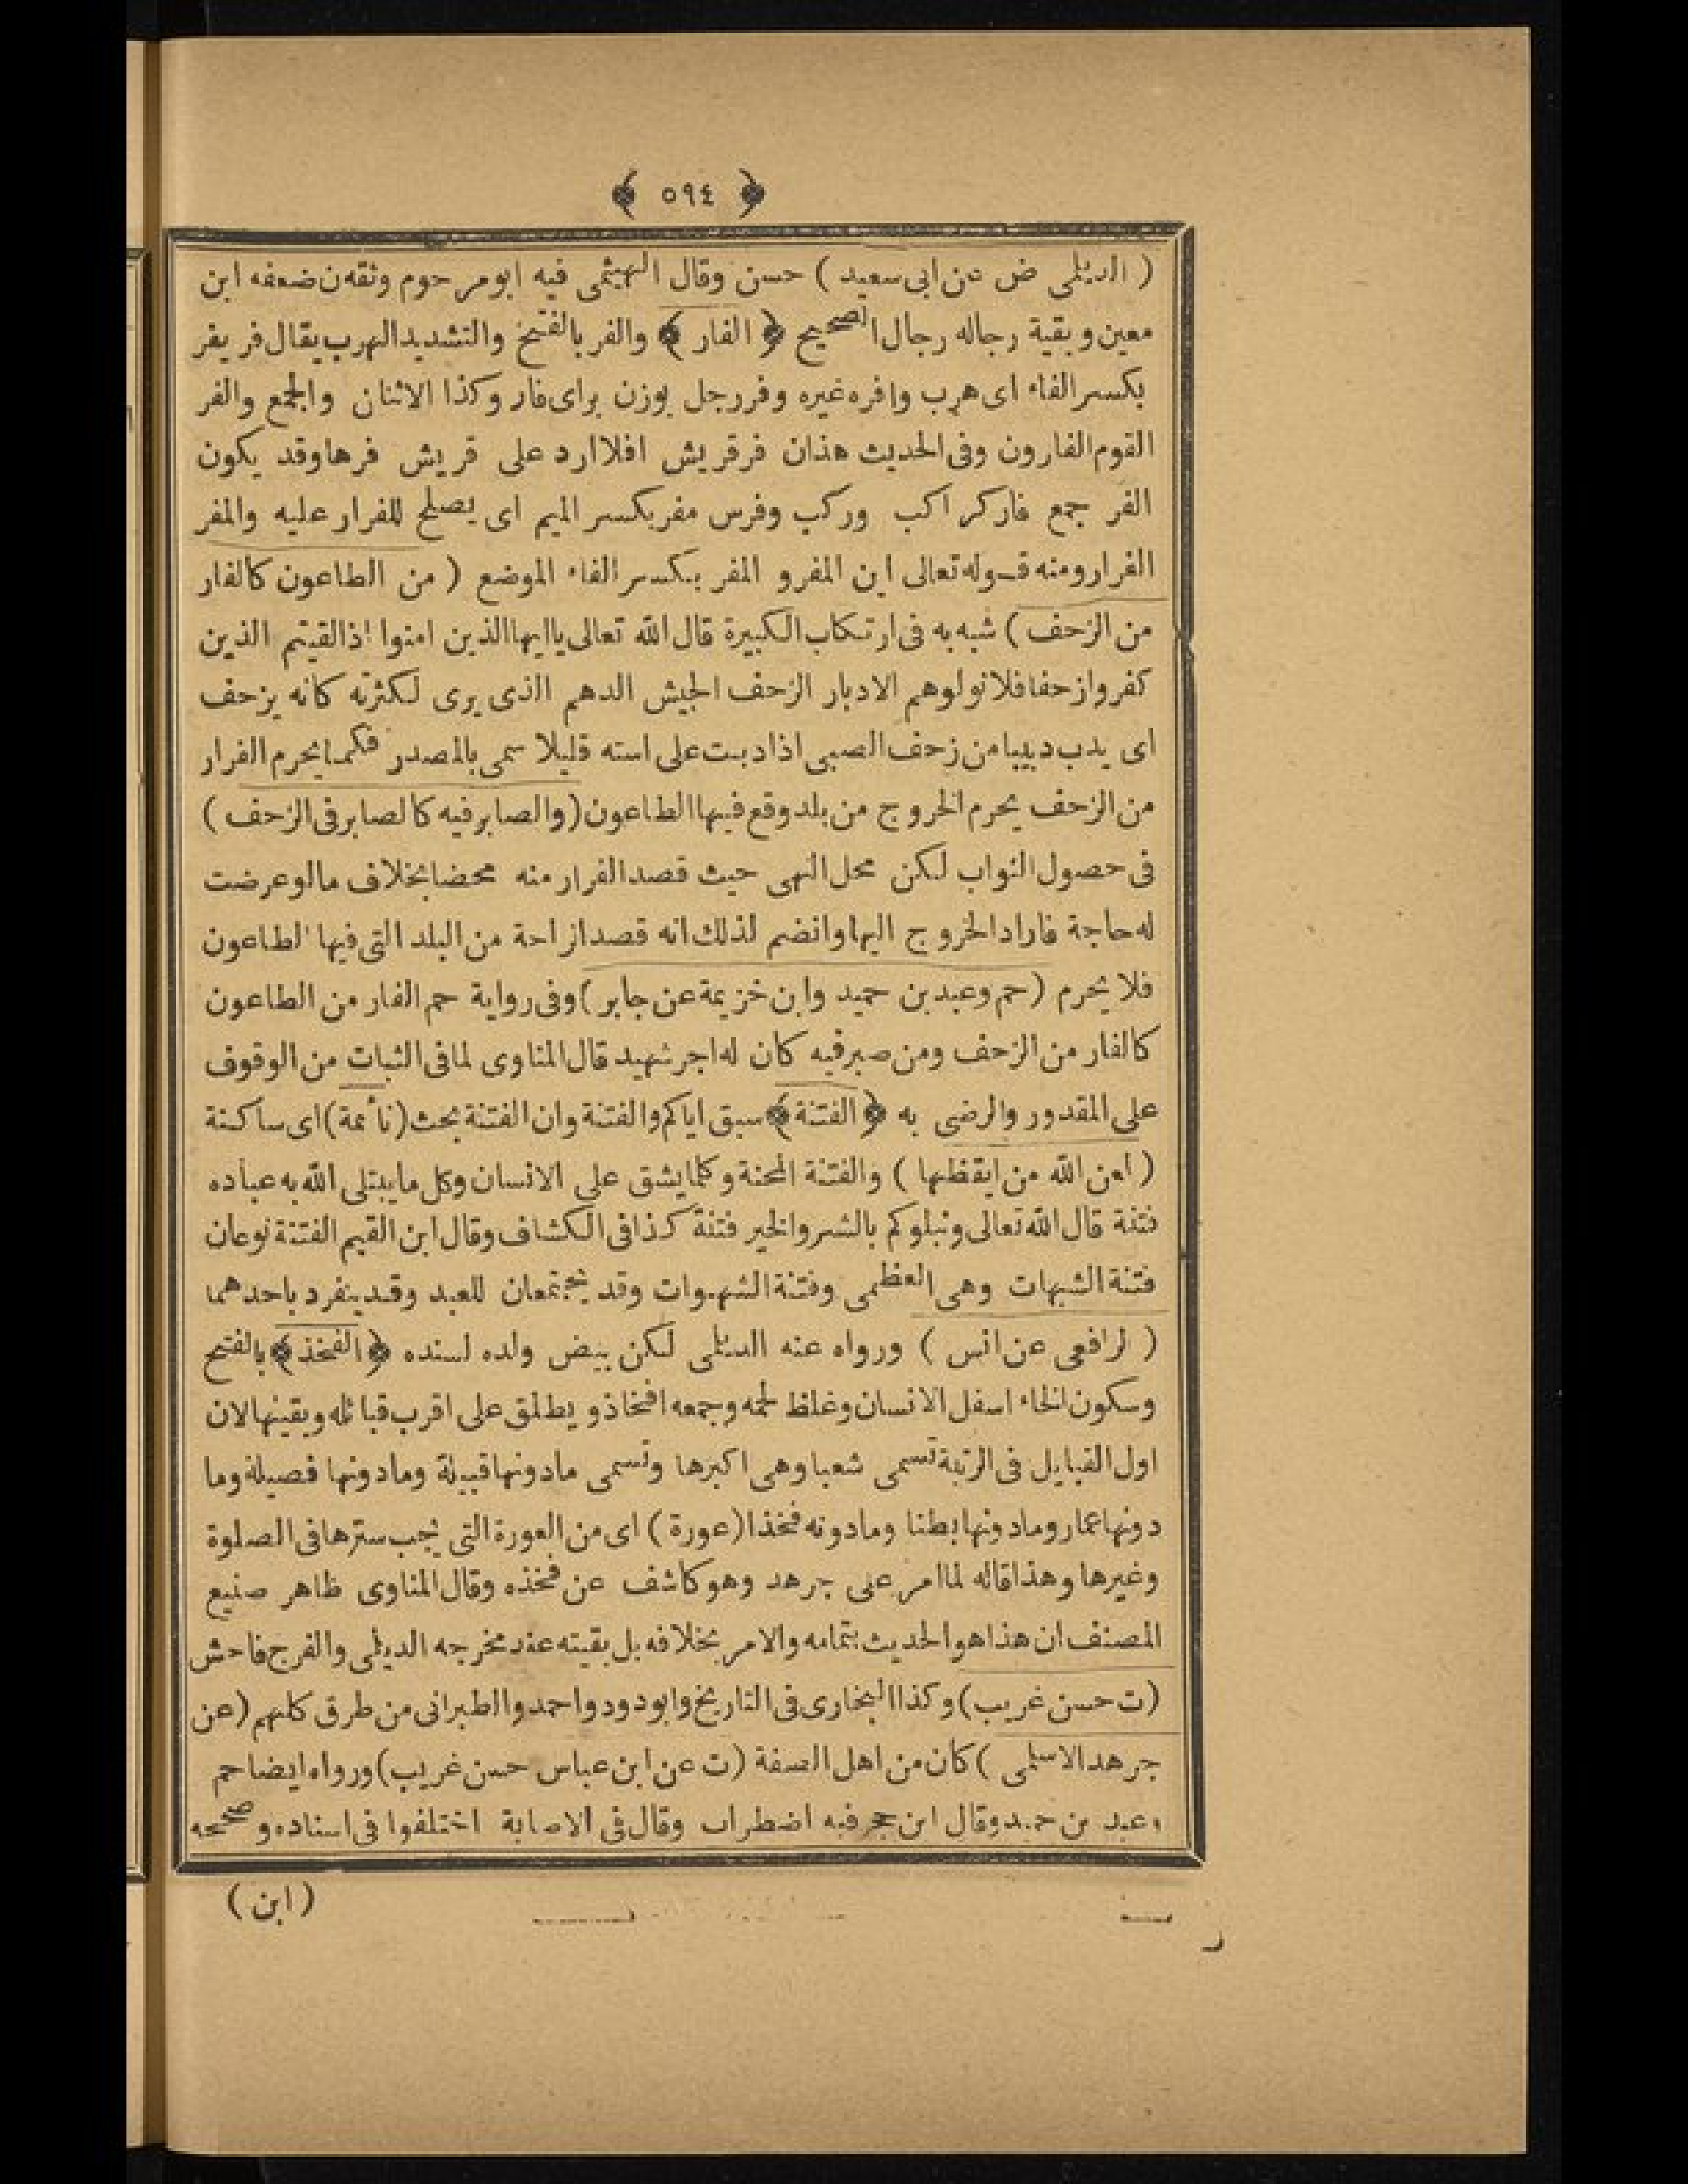 ﴿ ٥٩٤ ﴾
( الديلمى ض عن ابى سعيد ) حسن وقال الهيثمى فيه ابو مرحوم وثقه ن ضعفه ابن
معين وبقية رجاله رجال الصحيح ﴿ الفار ﴾ والفر بالفتح والتشديد الهرب يقال فر يفر
بكسر الفاء اى هرب وافره غيره وفر رجل بوزن براى فار وكذا الاثنان والجمع والفر
القوم الفارون وفى الحديث هذان فر قريش افلا ارد على قريش فرها وقد يكون
الفر جمع فار كراكب وركب وفرس مفر بكسر الميم اى يصلح للفرار عليه والمفر
الفرار ومنه قوله تعالى اين المفر و المفر بكسر الفاء الموضع ( من الطاعون كالفار
من الزحف ) شبه به فى ارتكاب الكبيرة قال الله تعالى يا ايها الذين امنوا اذا لقيتم الذين
كفروا زحفا فلا تولوهم الادبار الزحف الجيش الدهم الذى يرى لكثرته كانه يزحف
اى يدب دبيبا من زحف الصبى اذا دبت على استه قليلا سمى بالمصدر فكما يحرم الفرار
من الزحف يحرم الخروج من بلد وقع فيها الطاعون ( والصابر فيه كالصابر فى الزحف )
فى حصول الثواب لكن محل النهى حيث قصد الفرار منه محضا بخلاف ما لو عرضت
له حاجة فاراد الخروج اليها وانضم لذلك انه قصد ازاحة من البلد التى فيها الطاعون
فلا يحرم ( حم وعبد بن حميد وابن خزيمة عن جابر ) وفى رواية حم الفار من الطاعون
كالفار من الزحف ومن صبر فيه كان له اجر شهيد قال المناوى لما فى الثبات من الوقوف
على المقدور والرضى به ﴿ الفتنة ﴾ سبق اياكم والفتنة وان الفتنة بحث ( نائمة ) اى ساكنة
( لعن الله من ايقظها ) والفتنة المحنة وكلما يشق على الانسان وكل ما يبتلى الله به عباده
فتنة قال الله تعالى ونبلوكم بالشر والخير فتنة كذا فى الكشاف وقال ابن القيم الفتنة نوعان
فتنة الشبهات وهى العظمى وفتنة الشهوات وقد يجتمعان للعبد وقد ينفرد باحدهما
( الرافعى عن انس ) ورواه عنه الديلمى لكن بيض ولده لسنده ﴿ الفخذ ﴾ بالفتح
وسكون الخاء اسفل الانسان وغلظ لحمه وجمعه افخاذ ويطلق على اقرب قبائله وبقينها لان
اول القبايل فى الرتبة تسمى شعبا وهى اكبرها وتسمى ما دونها قبيلة وما دونها فصيلة وما
دونها عمار وما دونها بطنا وما دونه فخذا ( عورة ) اى من العورة التى يجب سترها فى الصلوة
وغيرها وهذا قاله لما مر على جرهد وهو كاشف عن فخذه وقال المناوى ظاهر صنيع
المصنف ان هذا هو الحديث بتمامه والامر بخلافه بل بقيته عند مخرجه الديلمى والفرج فاحش
( ت حسن غريب ) وكذا البخارى فى التاريخ وابو دود واحمد والطبرانى من طرق كلهم ( عن
جرهد الاسلمى ) كان من اهل الصفة ( ت عن ابن عباس حسن غريب ) ورواه ايضا حم
وعبد بن حميد وقال ابن حجر فيه اضطراب وقال فى الاصابة اختلفوا فى اسناده وصححه
( ابن )